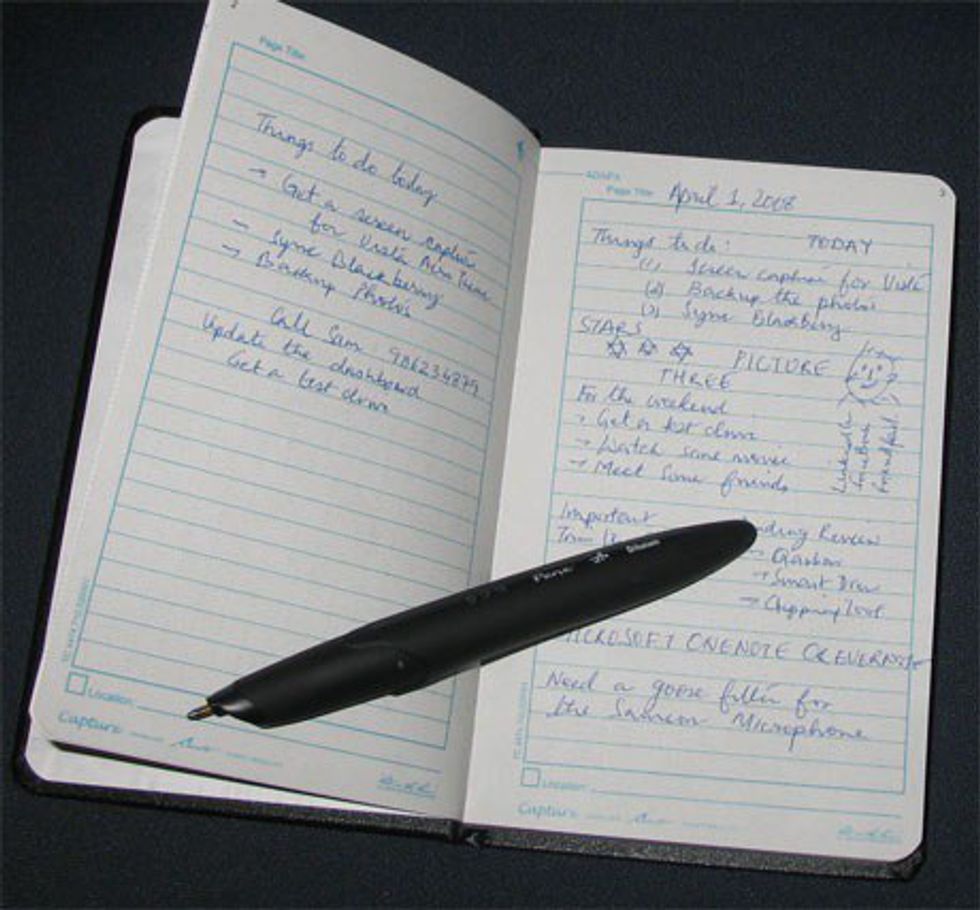 Page Title
Things to do today
→ Get a screen capture
for Vista Aero Theme
→ Sync Blackberry
→ Backup Photos
Call Sam 986234879
Update the dashboard
Get a test drive
Location
Capture
3
ADAPX
Page Title April 1, 2008
Things to do: TODAY
(1) Screen capture for Vista
(2) Backup the photos
(3) Sync Blackberry
STARS
PICTURE
THREE
For the weekend
→ Get a test drive
→ Watch some movie
→ Meet some friends
Important
Review
→ Smart Draw
→ Clipping Tool
MICROSOFT ONENOTE OR EVERNOTE
Need a goose filter for
the Samson Microphone
Location
Capture